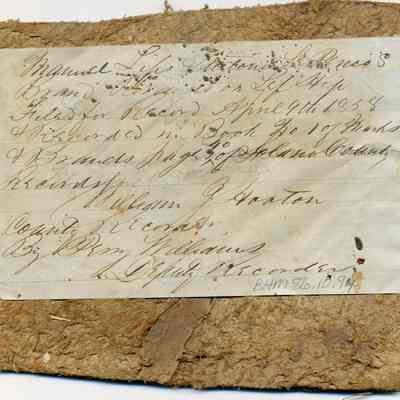 Manuel
Brand on Left Hip
Filed for Record April 9th 1858
& Recorded in Book No 1 of Marks
& Brands page 20 of Solano County
Records
William J Hooton
County Recorder
By Williams
Deputy Recorder
BAM 86.10.94